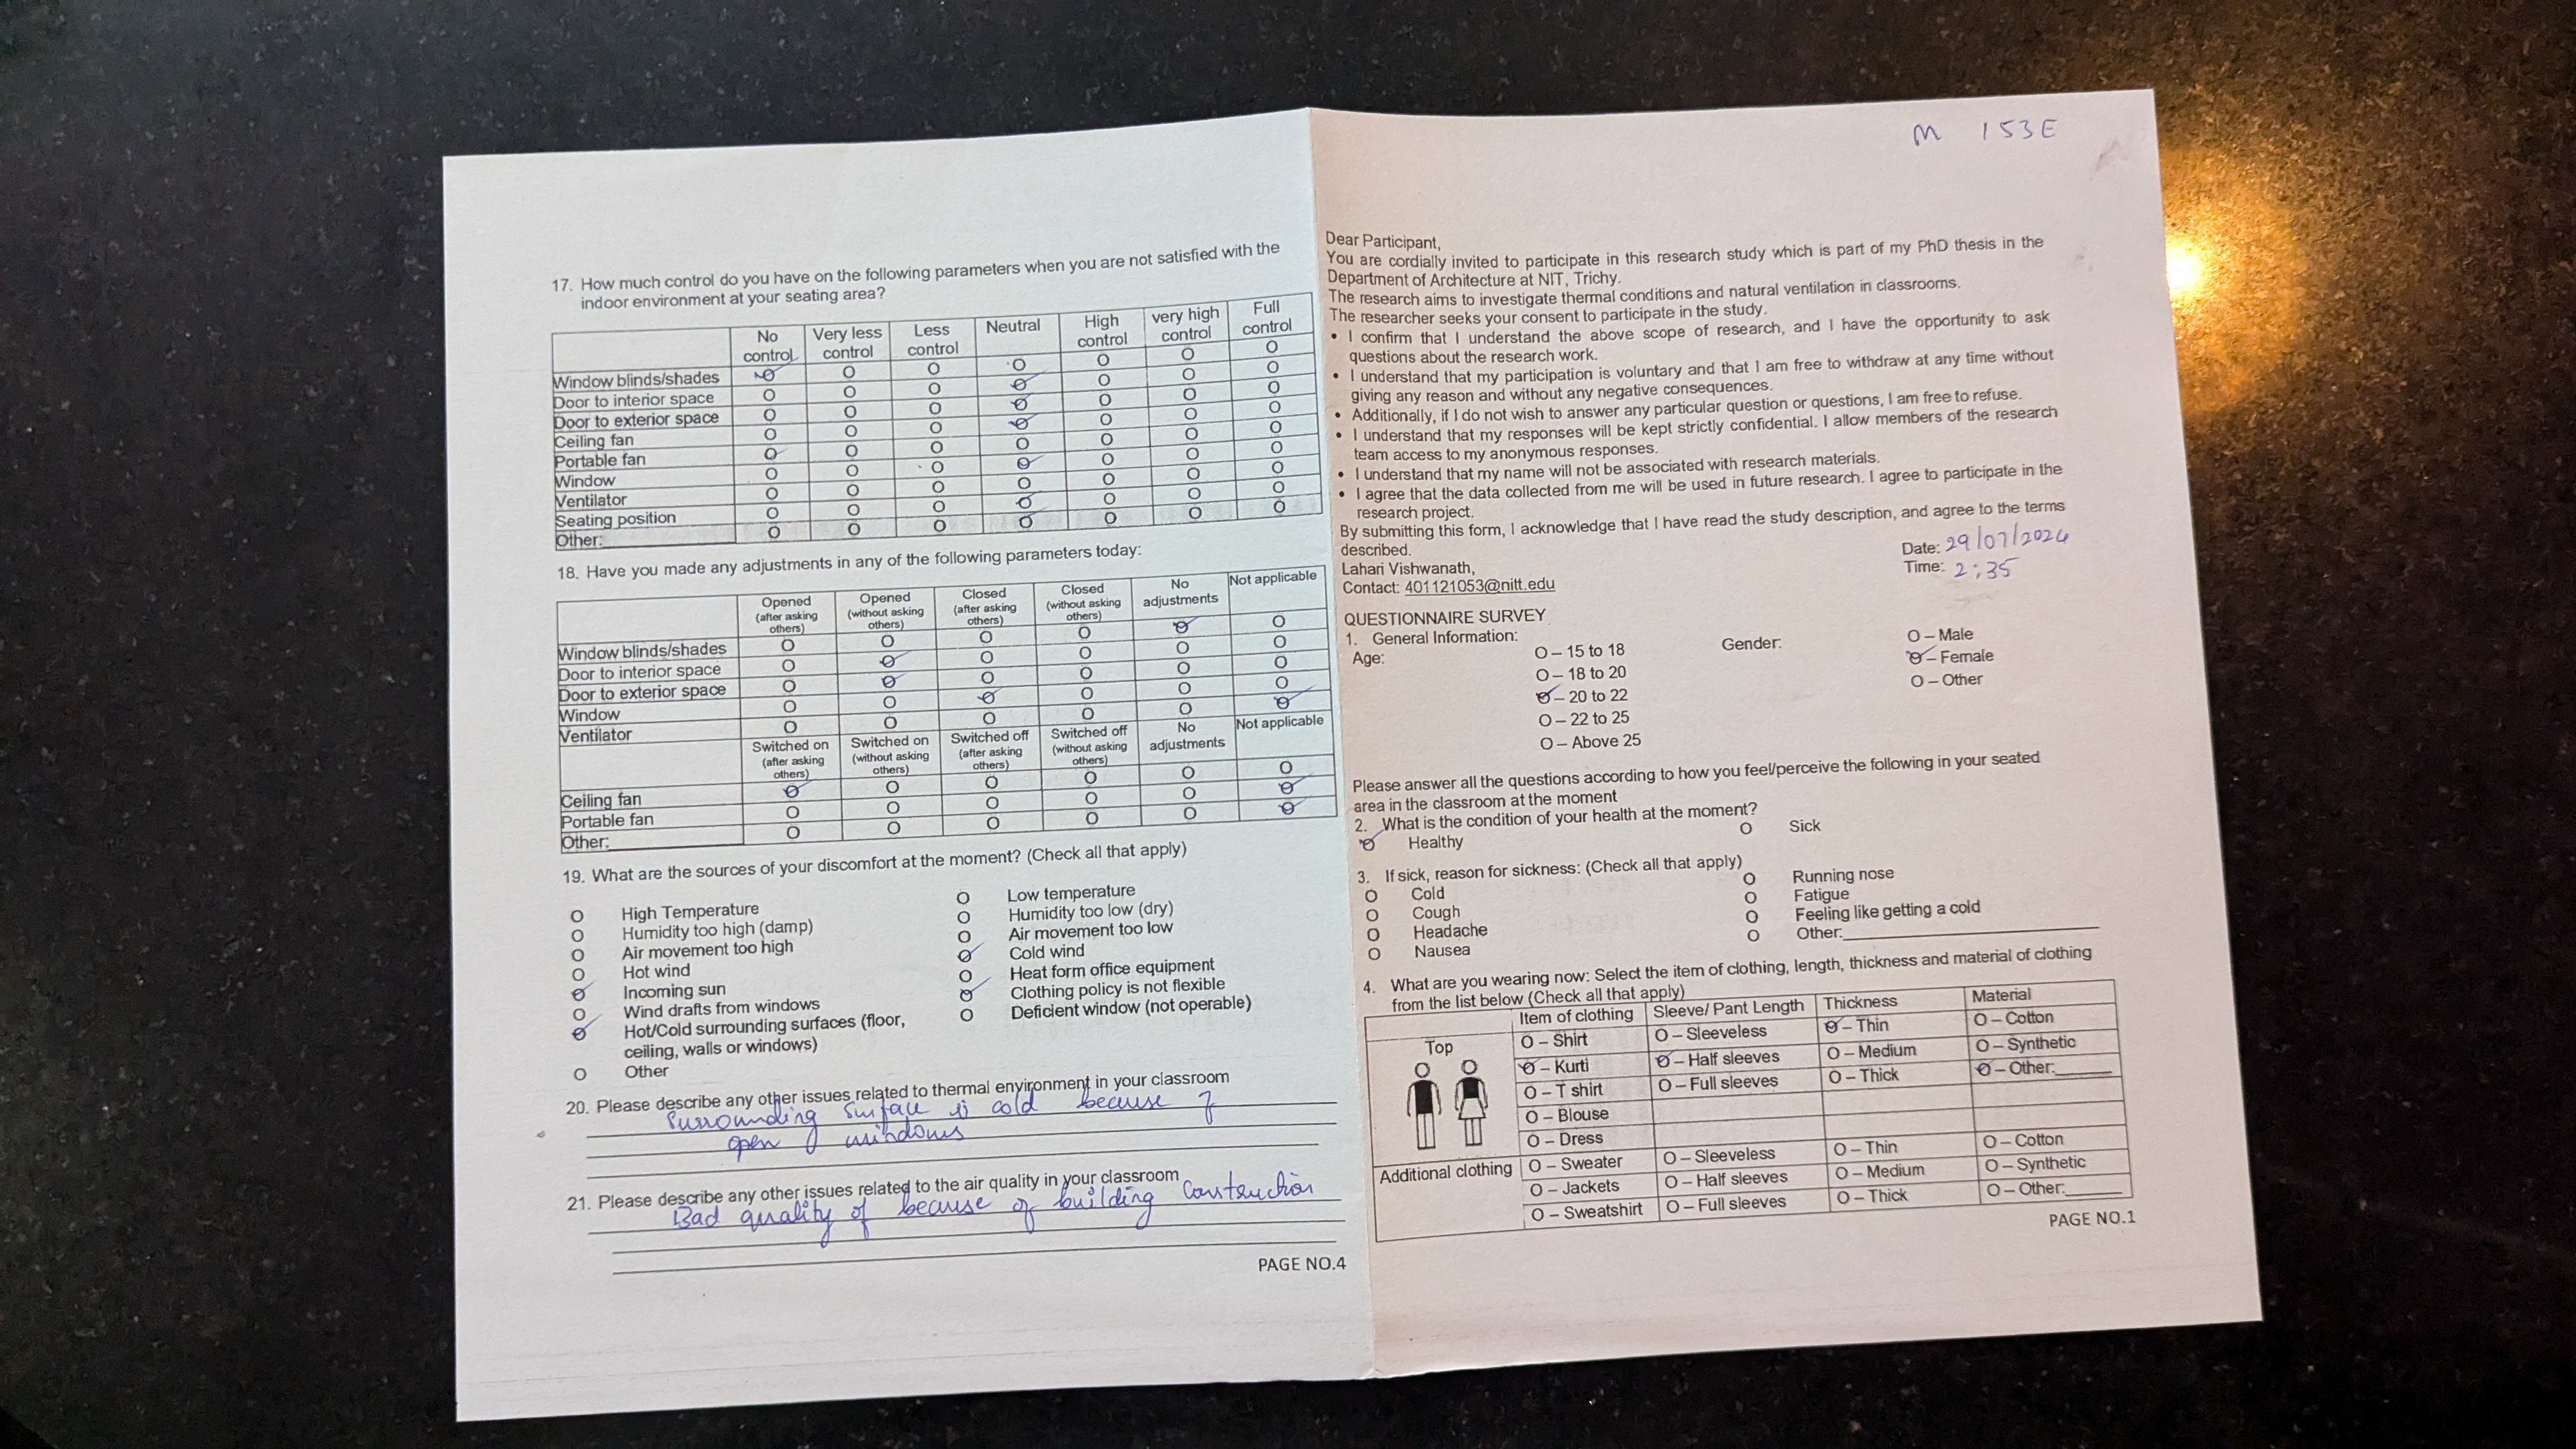 17. How much control do you have on the following parameters when you are not satisfied with the
indoor environment at your seating area?
No control Very less control Less control Neutral High control very high control Full control
Window blinds/shades
Door to interior space
Door to exterior space
Ceiling fan
Portable fan
Window
Ventilator
Seating position
Other:
18. Have you made any adjustments in any of the following parameters today:
Opened (after asking others) Opened (without asking others) Closed (after asking others) Closed (without asking others) No adjustments Not applicable
Window blinds/shades
Door to interior space
Door to exterior space
Window
Ventilator
Switched on (after asking others) Switched on (without asking others) Switched off (after asking others) Switched off (without asking others) No adjustments Not applicable
Ceiling fan
Portable fan
Other:
19. What are the sources of your discomfort at the moment? (Check all that apply)
High Temperature Low temperature
Humidity too high (damp) Humidity too low (dry)
Air movement too high Air movement too low
Hot wind Cold wind
Incoming sun Heat form office equipment
Wind drafts from windows Clothing policy is not flexible
Hot/Cold surrounding surfaces (floor, Deficient window (not operable)
ceiling, walls or windows)
Other
20. Please describe any other issues related to thermal environment in your classroom
Surrounding surface is cold because of
open windows
21. Please describe any other issues related to the air quality in your classroom
Bad quality of because of building construction
PAGE NO.4
M 153E
Dear Participant,
You are cordially invited to participate in this research study which is part of my PhD thesis in the
Department of Architecture at NIT, Trichy.
The research aims to investigate thermal conditions and natural ventilation in classrooms.
The researcher seeks your consent to participate in the study.
• I confirm that I understand the above scope of research, and I have the opportunity to ask
questions about the research work.
• I understand that my participation is voluntary and that I am free to withdraw at any time without
giving any reason and without any negative consequences.
• Additionally, if I do not wish to answer any particular question or questions, I am free to refuse.
• I understand that my responses will be kept strictly confidential. I allow members of the research
team access to my anonymous responses.
• I understand that my name will not be associated with research materials.
• I agree that the data collected from me will be used in future research. I agree to participate in the
research project.
By submitting this form, I acknowledge that I have read the study description, and agree to the terms
described.
Date: 29/07/2024
Lahari Vishwanath,
Time: 2:35
Contact: 401121053@nitt.edu
QUESTIONNAIRE SURVEY
1. General Information:
Age: O – 15 to 18 Gender: O – Male
O – 18 to 20 O – Female
O – 20 to 22 O – Other
O – 22 to 25
O – Above 25
Please answer all the questions according to how you feel/perceive the following in your seated
area in the classroom at the moment
2. What is the condition of your health at the moment?
O Healthy O Sick
3. If sick, reason for sickness: (Check all that apply)
O Cold O Running nose
O Cough O Fatigue
O Headache O Feeling like getting a cold
O Nausea O Other:
4. What are you wearing now: Select the item of clothing, length, thickness and material of clothing
from the list below (Check all that apply)
Item of clothing Sleeve/ Pant Length Thickness Material
Top O – Shirt O – Sleeveless O – Thin O – Cotton
O – Kurti O – Half sleeves O – Medium O – Synthetic
O – T shirt O – Full sleeves O – Thick O – Other:
O – Blouse
O – Dress
Additional clothing O – Sweater O – Sleeveless O – Thin O – Cotton
O – Jackets O – Half sleeves O – Medium O – Synthetic
O – Sweatshirt O – Full sleeves O – Thick O – Other:
PAGE NO.1